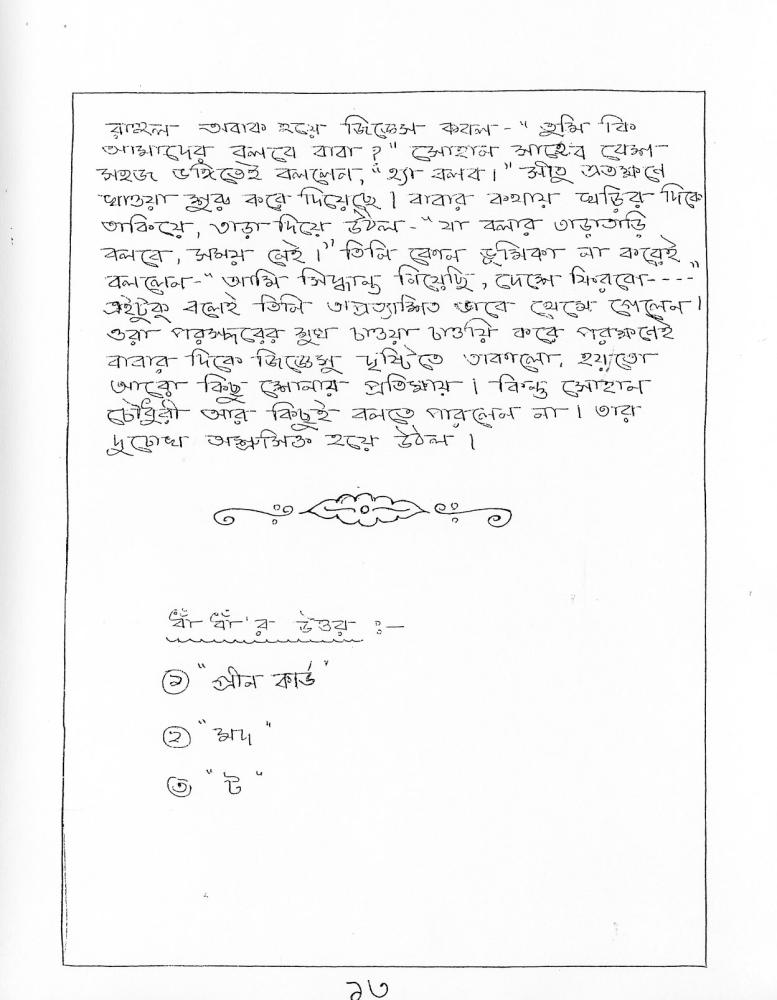 রাহুল অবাক হয়ে জিজ্ঞেস করল - " তুমি কি
আমাদের বলবে বাবা ? " সোহান সাহেব বেশ
সহজ ভঙ্গিতেই বললেন, " হ্যা বলব । " নীতু এতক্ষণে
খাওয়া শুরু করে দিয়েছে । বাবার কথায় ঘড়ির দিকে
তাকিয়ে, তাড়া দিয়ে উঠল - " যা বলার তাড়াতাড়ি
বলবে, সময় নেই । " তিনি কোন ভূমিকা না করেই
বললেন - " আমি সিদ্ধান্ত নিয়েছি, দেশে ফিরবো - - - - "
এইটুকু বলেই তিনি অপ্রত্যাশিত ভাবে থেমে গেলেন ।
ওরা পরস্পরের মুখ চাওয়া চাওয়ি করে পরক্ষনেই
বাবার দিকে জিজ্ঞেসু দৃষ্টিতে তাকালো, হয়তো
আরো কিছু শোনার প্রতিক্ষায় । কিন্তু সোহান
চৌধুরী আর কিছুই বলতে পারলেন না । তার
দুচোখ অশ্রুসিক্ত হয়ে উঠল ।
ধাঁ ধাঁ'র উত্তর :-
১ " গ্রীন কার্ড "
২ " মদ "
৩ " ট "
১৩